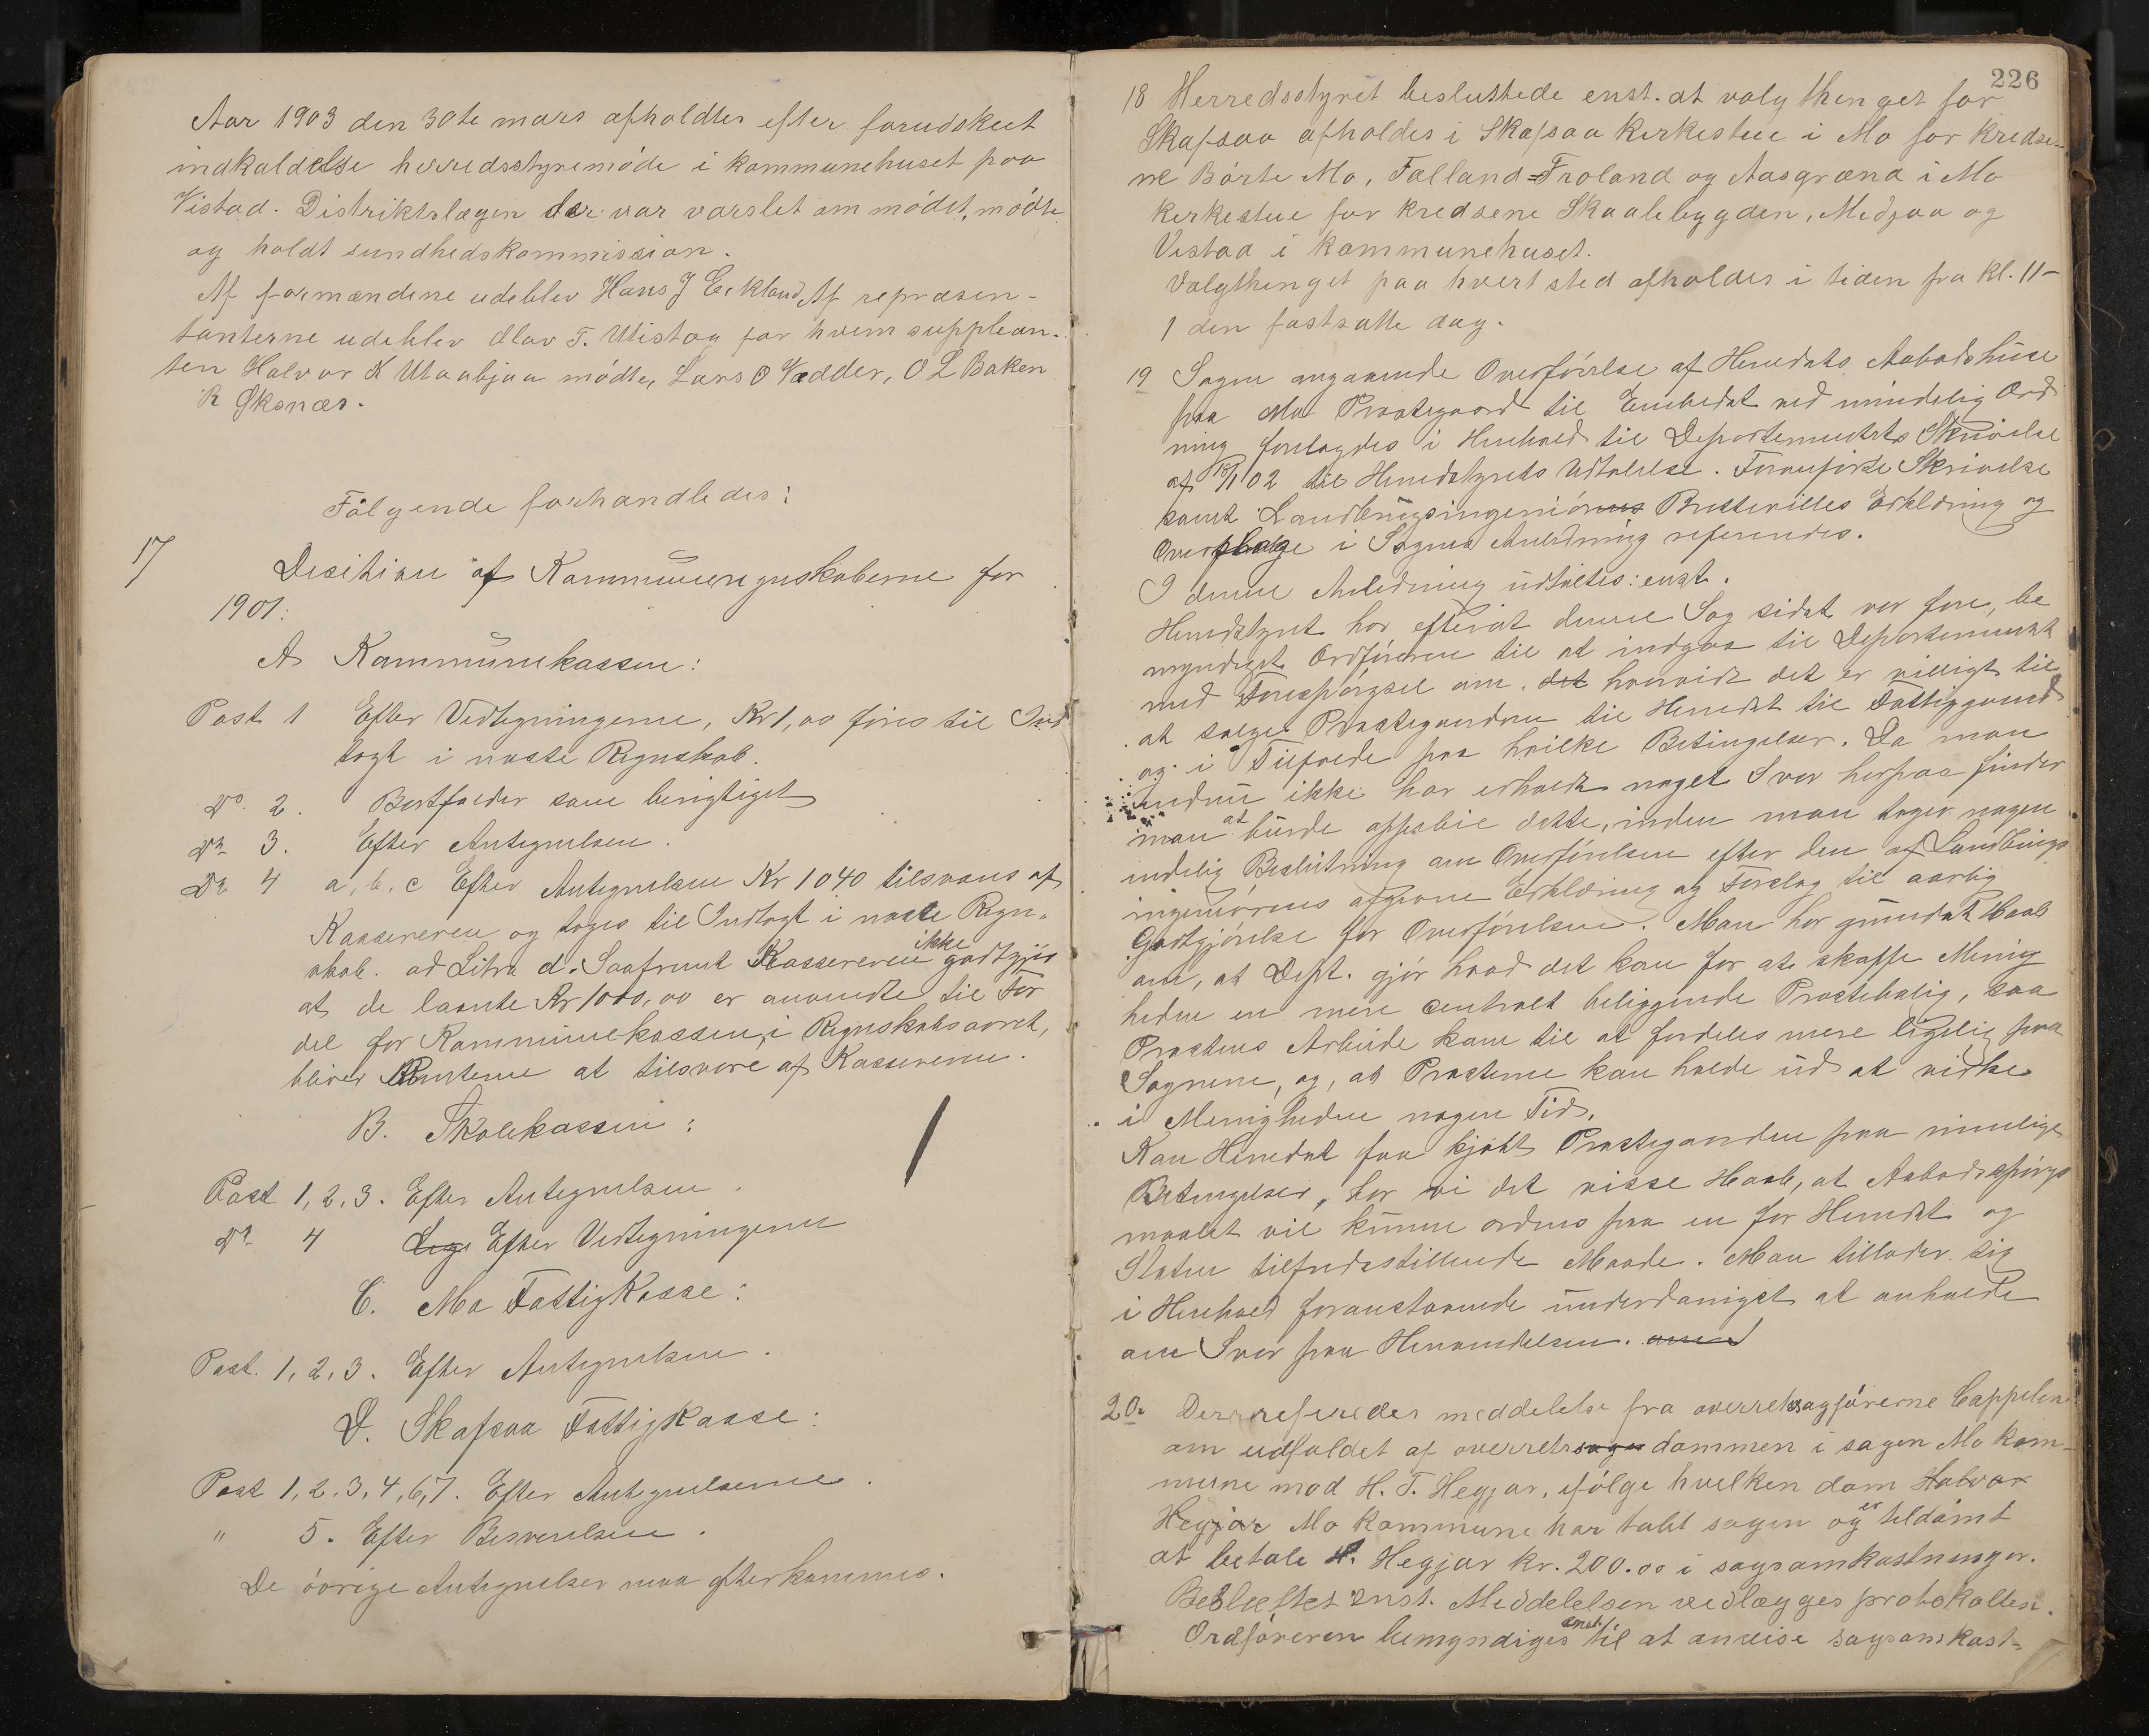 Aar 1903 den 30te mars afholdtes efter forudskeet
indkaldelse herredsstyremøde i kommunehuset paa
Vistad. Distriktslægen der var varslet om mødet, mødte
og holdt sundhedskommission.
Af formændene udeblev Hans J Eekland, Af repræsen-
tanterne udeblev Olav T. Utistog for hvem supplean-
ten Halvor K Utaabjaa mødte, Lars O Vadder, O L Baken
R Oksnær.
Følgende forhandledes:
17
Desition af Kommuneregnskaberne for
1901:
A Kommunekassen:
Post 1 Efter Vedtegningerne, Kr 1,00 føres til Ind
tægt i næste Regnskab.
Do 2. Bortfalder som berigtiget
Do 3. Efter Antegnelsen.
Do 4 a, b, c Efter Antegnelsen Kr 1040 tilsvares af
Kassereren og tages til Indtægt i næste Regn-
skab. ad Litra d. Saafremt Kassereren ikke godtgjør
at de laante Kr 1000,00 er anvendte til For
del for Kommunekassen i Regnskabsaaret,
bliver Renterne at tilsvare af Kassereren.
B. Skolekassen:
Post 1, 2, 3. Efter Antegnelsen.
Do 4 Lige Efter Vedtegningerne
C. Mo Fattigkasse:
Post. 1, 2, 3. Efter Antegnelsen.
D. Skafsaa Fattigkasse:
Post 1, 2, 3, 4, 6, 7. Efter Antegnelserne.
" 5. Efter Besvarelsen.
De øvrige Antegnelser maa efterkommes.
226
18 Herredsstyret besluttede enst. at valgthinget for
Skafsaa afholdes i Skafsaa kirkestue i Mo for kredse-
ne Børte Mo, Falland=Froland og Aasgrænd i Mo
kirkestue for kredsene Skaalebygden, Medjaa og
Vistad i kommunehuset.
Valgthinget paa hvert sted afholdes i tiden fra kl. 11-
1 den fastsatte dag.
19 Sagen angaaende Overførelse af Herredets Aabodshuse
paa Mo Præstegaard til Embedet ved mindelig Ord
ning forelagdes i Henhold til Departementets Skrivelse
af 18/1 02 til Herredstyrets Udtalelse. Foranførte Skrivelse
samt Landbrugsingeniørens Erklæring og
i Sagens Anledning refereredes.
I denne Anledning udtaltes: enst.
Herredstyret har efterat denne Sag sidst var fore, be
myndiget Ordføreren til at indgaa til Departementet
med Forespørgsel om, det hvorvidt det er villigt til
at sælge Præstegaarden til Herredet til Fattiggaard
og i Tilfælde paa hvilke Betingelser. Da man
endnu ikke har erholdt noget Svar herpaa finder
man at burde oppebie dette, inden man tager nogen
endelig Beslutning om Overførelsen efter den af Landbrugs
ingeniørens afgivne Erklæring og Forslag til aarlig
Godtgjørelse for Overførelsen. Man har grundet Haab
om, at Dept. gjør hvad det kan for at skaffe Menig
heden en mere centralt beliggende Præstebolig, saa
Præstens Arbeide kan til at fordeles mere ligelig paa
Sognene, og, at Præsterne kan holde ud at virke
i Menigheden nogen Tid.
Kan Herredet faa kjøbt Præstegaarden paa rimelige
Betingelser, har vi det visse Haab, at Aabodsspørgs
maalet vil kunne ordnes paa en for Herredet og
Staten tilfredsstillende Maade. Man tillader sig
i Henhold foranstaaende underdanigst at anholde
om Svar paa Henvendelsen.
20. Der refereredes meddelelse fra overretssagførerne Cappelen
om udfaldet af overretssagen dommen i sagen Mo kom-
mune mod H. T. Hegjar, ifølge hvilken dom Halvor
Hegjar Mo kommune har tabt sagen og er tildømt
at betale H. Hegjar kr. 200.00 i sagsomkostninger.
Besluttet enst. Meddelelsen vedlægges protokollen.
Ordføreren bemyndiges enst. til at anvise sagsomkost-